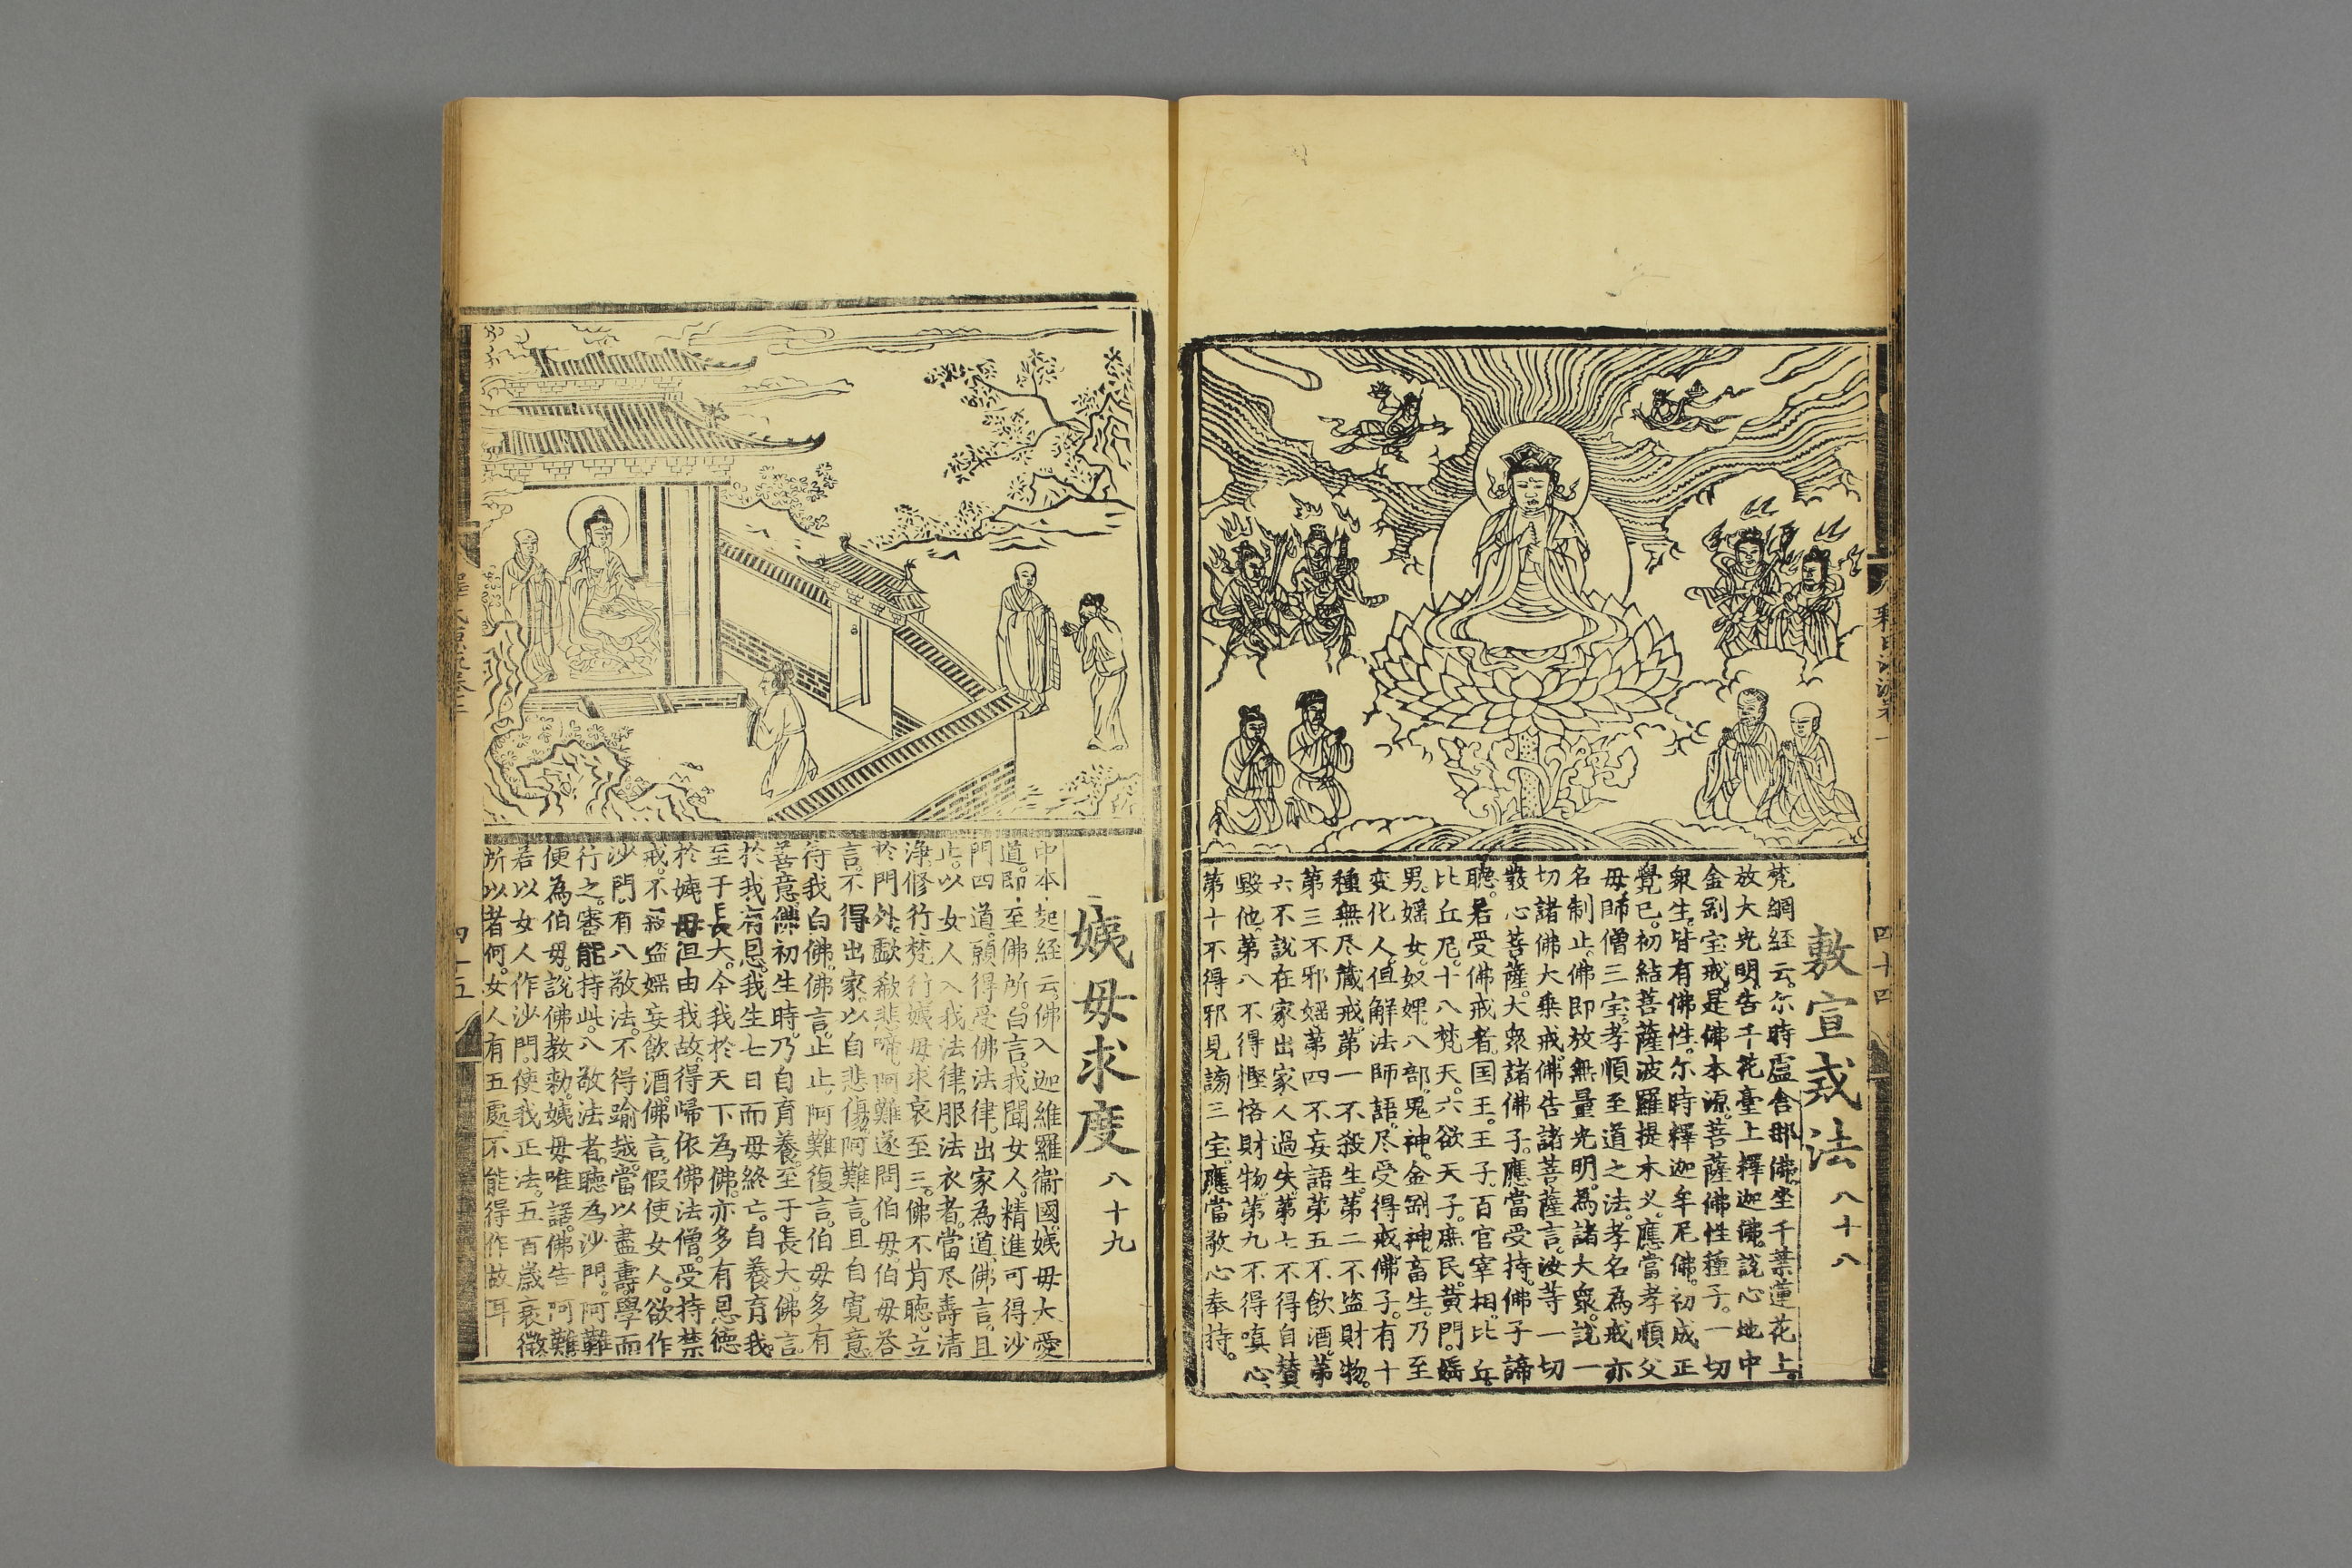 敷宣戒法 八十八
梵網經云。尒時盧舍那佛。坐千葉蓮花上。
放大光明。告千花臺上釋迦佛。說心地中
金剛宝戒。是佛本源。菩薩佛性種子。一切
衆生。皆有佛性。尒時釋迦牟尼佛。初成正
覺已。初結菩薩波羅提木叉。應當孝順父
母師僧三宝。孝順至道之法。孝名為戒。亦
名制止。佛即放無量光明。為諸大衆。說一
切諸佛大乗戒。佛告諸菩薩言。汝等一切
發心菩薩。大衆諸佛子。應當受持。佛子諦
聽。若受佛戒者。囯王。王子。百官宰相。比丘。
比丘尼。十八梵天。六欲天子。庶民。黄門。婬
男。婬女。奴婢。八部。鬼神。金剛神。畜生。乃至
变化人。但解法師語。尽受得戒。佛子。有十
種無尽藏戒。第一不殺生。第二不盗財物。
第三不邪婬。第四不妄語。第五不飲酒。第
六不說在家出家人過失。第七不得自賛
毀他。第八不得慳悋財物。第九不得嗔心。
第十不得邪見謗三宝。應當敬心奉持。
四十四
姨毋求度 八十九
中本起經云。佛入迦維羅衞國。姨毋大愛
道。即至佛所。白言。我聞女人。精進可得沙
門四道。願得受佛法律。出家為道。佛言。且
止。以女人入我法律。服法衣者。當尽壽清
浄。修行梵行。姨毋求哀至三。佛不肯聴。立
於門外。歔欷悲啼。阿難遂問伯毋。伯毋荅
言。不得出家。以自悲傷。阿難言。且自寛意。
待我白佛。佛言。止止。阿難復言。伯毋多有
善意。佛初生時。乃自育養。至于長大。佛言。
於我有恩。我生七日而毋終亡。自養育我。
至于長大。今我於天下為佛。亦多有恩德
於姨毋。但由我故。得歸依佛法僧。受持禁
戒。不殺盗婬妄飲酒。佛言。假使女人。欲作
沙門。有八敬法。不得踰越。當以盡壽學而
行之。審能持此八敬法者。聽為沙門。阿難
便為伯毋。說佛教勑。姨毋唯諾。佛告阿難
若以女人作沙門。使我正法。五百歲衰微。
所以者何。女人有五處。不能得作故耳
四十五